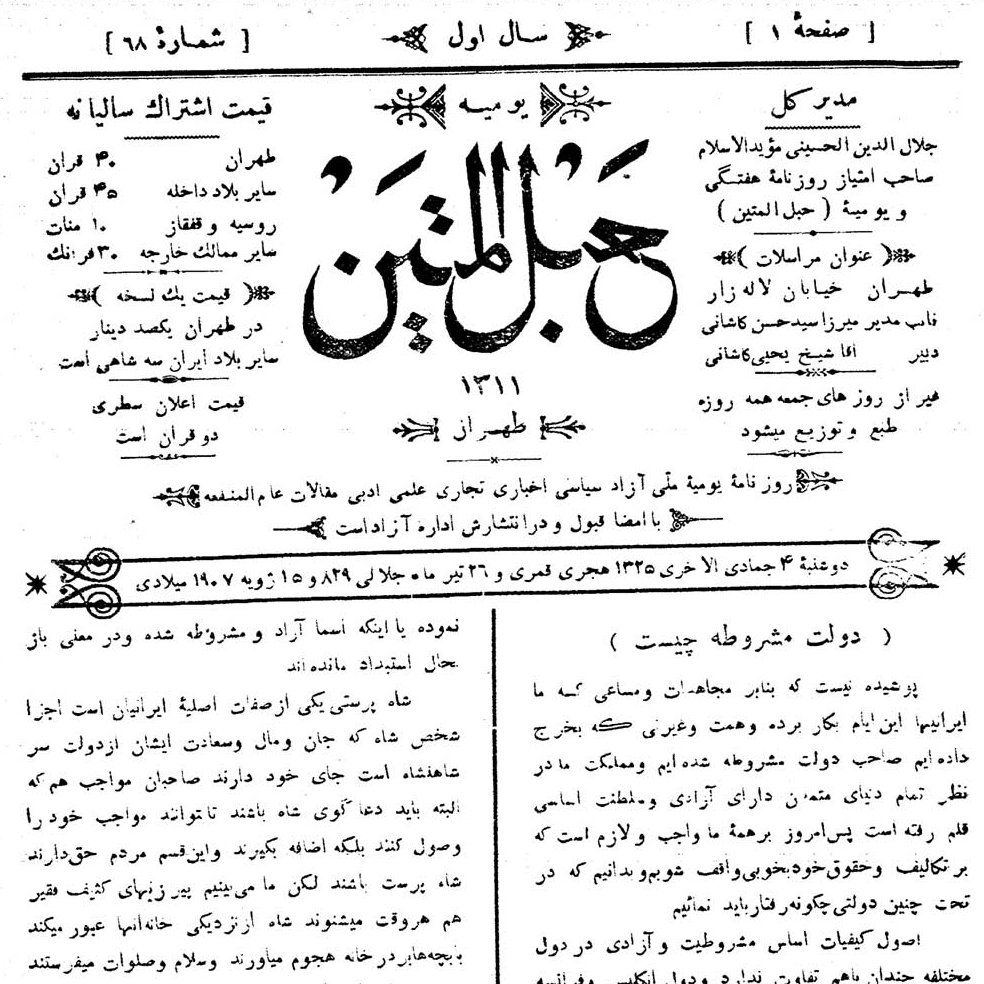 [ صفحهٔ ۱ ]
سال اول
[ شمارهٔ ۶۸ ]
مدیر کل
جلال الدین الحسینی مؤیدالاسلام
صاحب امتیاز روزنامهٔ هفتگی
و یومیهٔ ( حبل المتین )
( عنوان مراسلات )
طهران خیابان لاله زار
نائب مدیر میرزا سید حسن کاشانی
دبیر آقا شیخ یحیی کاشانی
غیر از روز های جمعه همه روزه
طبع و توزیع میشود
یومیه
حبل المتین
۱۳۱۱
طهران
قیمت اشتراك سالیانه
طهران ۴۰ قران
سایر بلاد داخله ۴۵ قران
روسیه و قفقاز ۱۰ منات
سایر ممالك خارجه ۳۰ فرانك
( قیمت یك نسخه )
در طهران یکصد دینار
سایر بلاد ایران سه شاهی است
قیمت اعلان سطری
دو قران است
روزنامهٔ یومیهٔ ملّی آزاد سیاسی اخباری تجاری علمی ادبی مقالات عام المنفعه
با امضا قبول و در انتشارش اداره آزاد است
دوشنبهٔ ۴ جمادی الاخری ۱۳۲۵ هجری قمری و ۲۶ تیر ماه جلالی ۸۲۹ و ۱۵ ژویه ۱۹۰۷ میلادی
( دولت مشروطه چیست )
پوشیده نیست که بنابر مجاهدات و مساعی که ما
ایرانیها این ایام بکار برده و همت و غیرتی که بخرج
داده ایم صاحب دولت مشروطه شده ایم و مملکت ما در
نظر تمام دنیای متمدن دارای آزادی و سلطنت اساسی
قلم رفته است پس امروز بر همهٔ ما واجب و لازم است که
بر تکالیف و حقوق خود بخوبی واقف شویم و بدانیم که در
تحت چنین دولتی چگونه رفتار باید نمائیم
اصول کیفیات اساس مشروطیت و آزادی در دول
مختلفه چندان باهم تفاوت ندارد و دول انگلیس و فرانسه
نموده یا اینکه اسما آزاد و مشروطه شده و در معنی باز
بحال استبداد مانده اند
شاه پرستی یکی از صفات اصلیهٔ ایرانیان است اجزا
شخص شاه که جان و مال و سعادت ایشان از دولت سر
شاهنشاه است جای خود دارند صاحبان مواجب هم که
البته باید دعا گوی شاه باشند تا توانند مواجب خود را
وصول کنند بلکه اضافه بگیرند و این قسم مردم حق دارند
شاه پرست باشند لکن ما می بینیم پیر زنهای کثیف فقیر
هم هر وقت میشنوند شاه از نزدیکی خانه آنها عبور میکند
با بچه ها بر در خانه هجوم میاورند و سلام و صلوات میفرستند